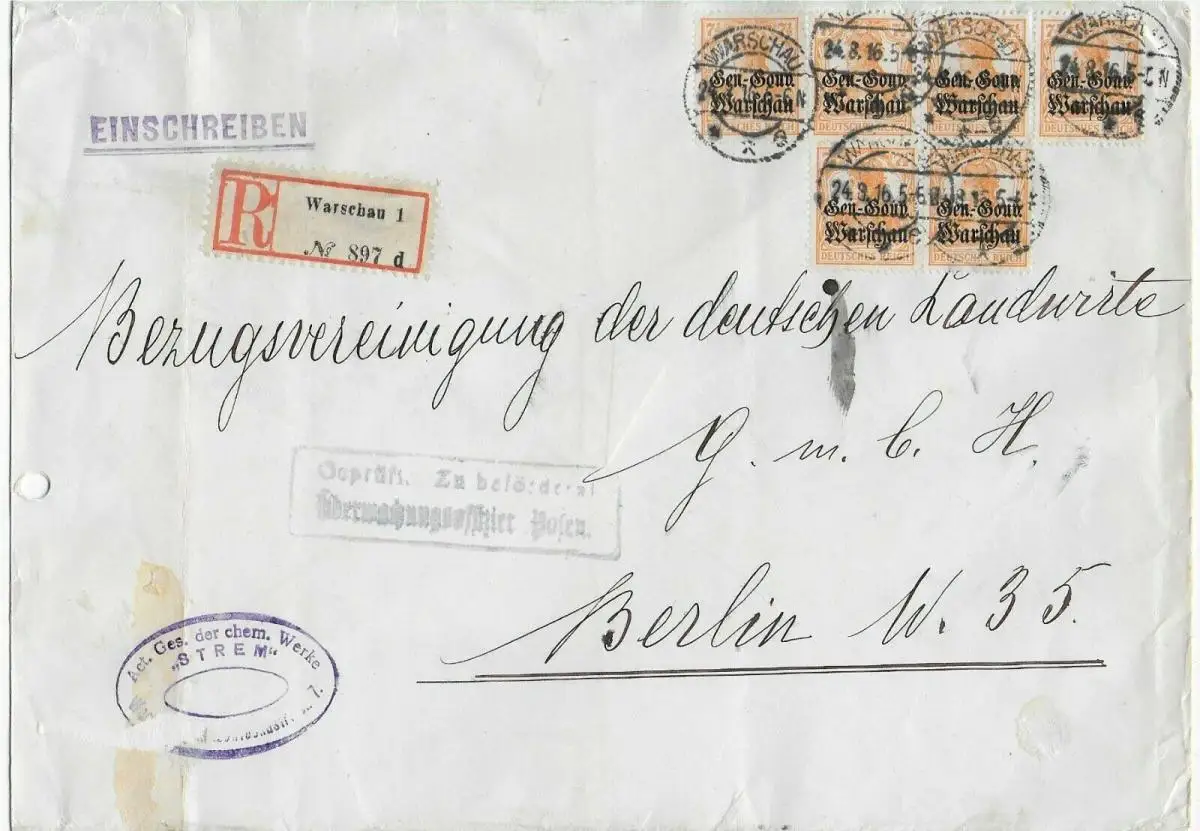 WARSCHAU
24.8.16.5-6N
Gen.-Gouv.
Warschau
DEUTSCHES REICH
24.8.16.5-6
Gen.-Gouv.
Warschau
DEUTSCHES REICH
WARSCHAU
Gen.-Gouv.
Warschau
DEUTSCHES REICH
WARSCHAU
24.8.16.5-6N
Gen.-Gouv.
Warschau
DEUTSCHES REICH
WARSCHAU
24.8.16.5-6
Gen.-Gouv.
Warschau
DEUTSCHES REICH
WARSCHAU
Gen.-Gouv.
Warschau
DEUTSCHES REICH
EINSCHREIBEN
R
Warschau 1
№ 897 d
Bezugsvereinigung der deutschen Landwirte
G. m. b. H.
Geprüft. Zu befördern!
Überwachungsoffizier Posen.
Berlin W. 35.
Act. Ges. der chem. Werke
„STREM“
7.